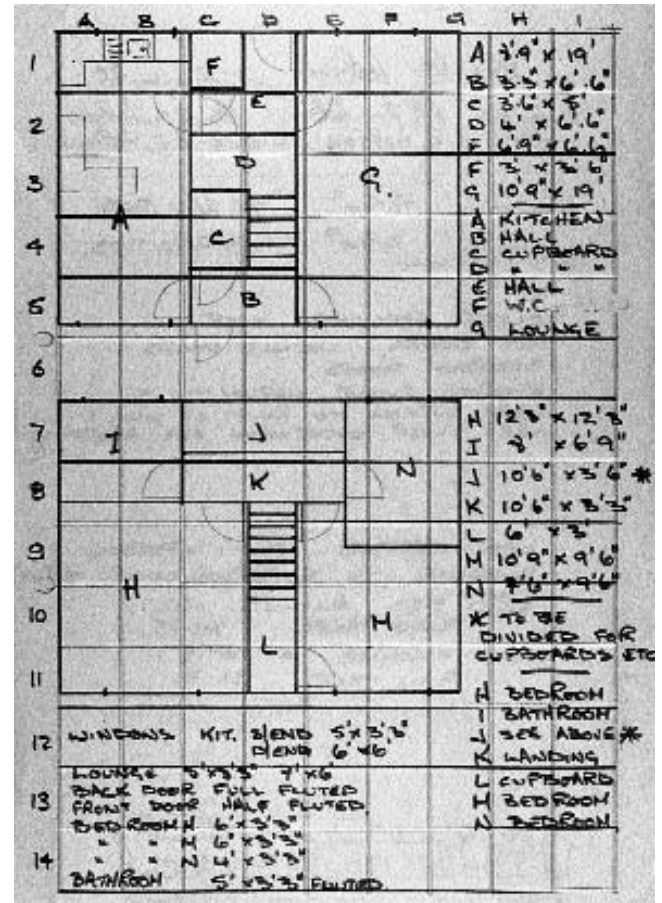 A B C D E F G H I
1
2
3
4
5
6
7
8
9
10
11
12
13
14
F
E
D
G.
A
C
B
J
I
K
N
H
H
L
A 8'.9" x 19'
B 3'.3" x 6'.6"
C 3'.6" x 5'
D 4' x 6'.6"
F 6'.9" x 6'.6"
F 3' x 3'.6"
G 10'9" x 19'
A KITCHEN
B HALL
C CUPBOARD
D " " "
E HALL
F W.C.
G LOUNGE
H 12'3" x 12'3"
I 8' x 6'9"
J 10'6" x 3'6" *
K 10'6" x 3'3"
L 6' x 3'
M 10'9" x 9'6"
N 7'6" x 9'6"
* TO BE
DIVIDED FOR
CUPBOARDS ETC
H BEDROOM
I BATHROOM
J SEE ABOVE *
K LANDING
L CUPBOARD
M BEDROOM
N BEDROOM
WINDOWS KIT. S/END 5' x 3'.3"
D/END 6' x 6'
LOUNGE 5' x 3'3" 7' x 6'
BACK DOOR FULL FLUTED
FRONT DOOR HALF FLUTED
BEDROOM H 6' x 3'3"
" " M 6' x 3'3"
" " N 4' x 3'3"
BATHROOM 5' x 3'3" FLUTED